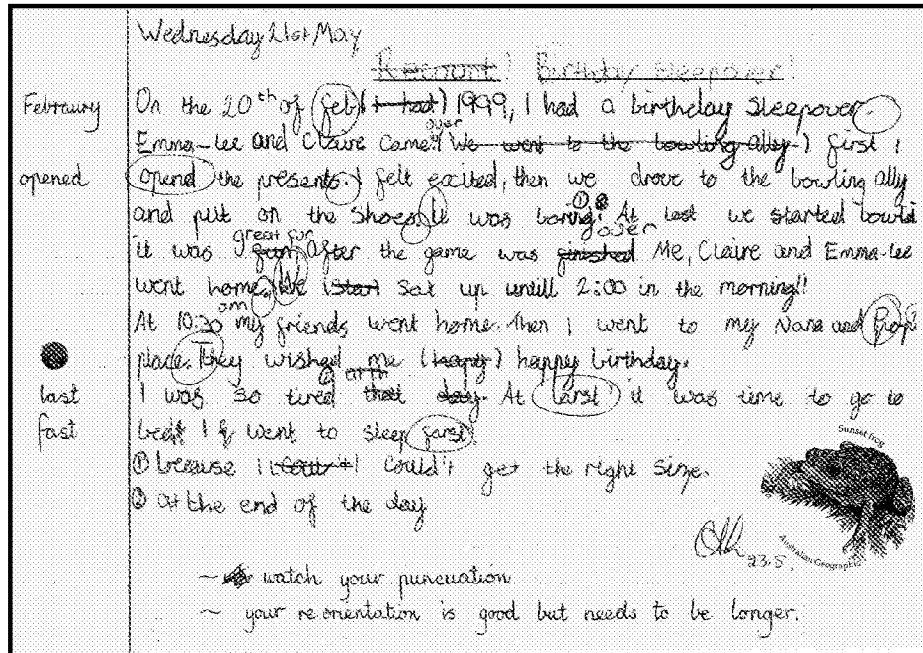 Wednesday 21st May
Recount! Birthday Sleepover!
Febraury On the 20th of feb (I had) 1999, I had a birthday Sleepover.
over
Emma-Lee and Claire came. (We went to the bowling ally) first I
opened opend the presents. I felt excited, then we drove to the bowling ally
and put on the shoes. It was boring! ① At last we started
great fun over
it was fun after the game was finished Me, Claire and Emma-Lee
went home. We (Star) Sat up untill 2:00 in the morning!!
am
At 10:30 my friends went home. Then I went to my Nana and
place. They wished me (hapy) happy birthday.
② at th
last I was so tired that day. At larst it was time to go to
fast bed! I went to sleep farst!
① because I (Coul't) I Could't get the right size.
② at the end of the day
Sunset frog
Australian Geographic
23.5.
~ watch your puncuation
~ your reorientation is good but needs to be longer.